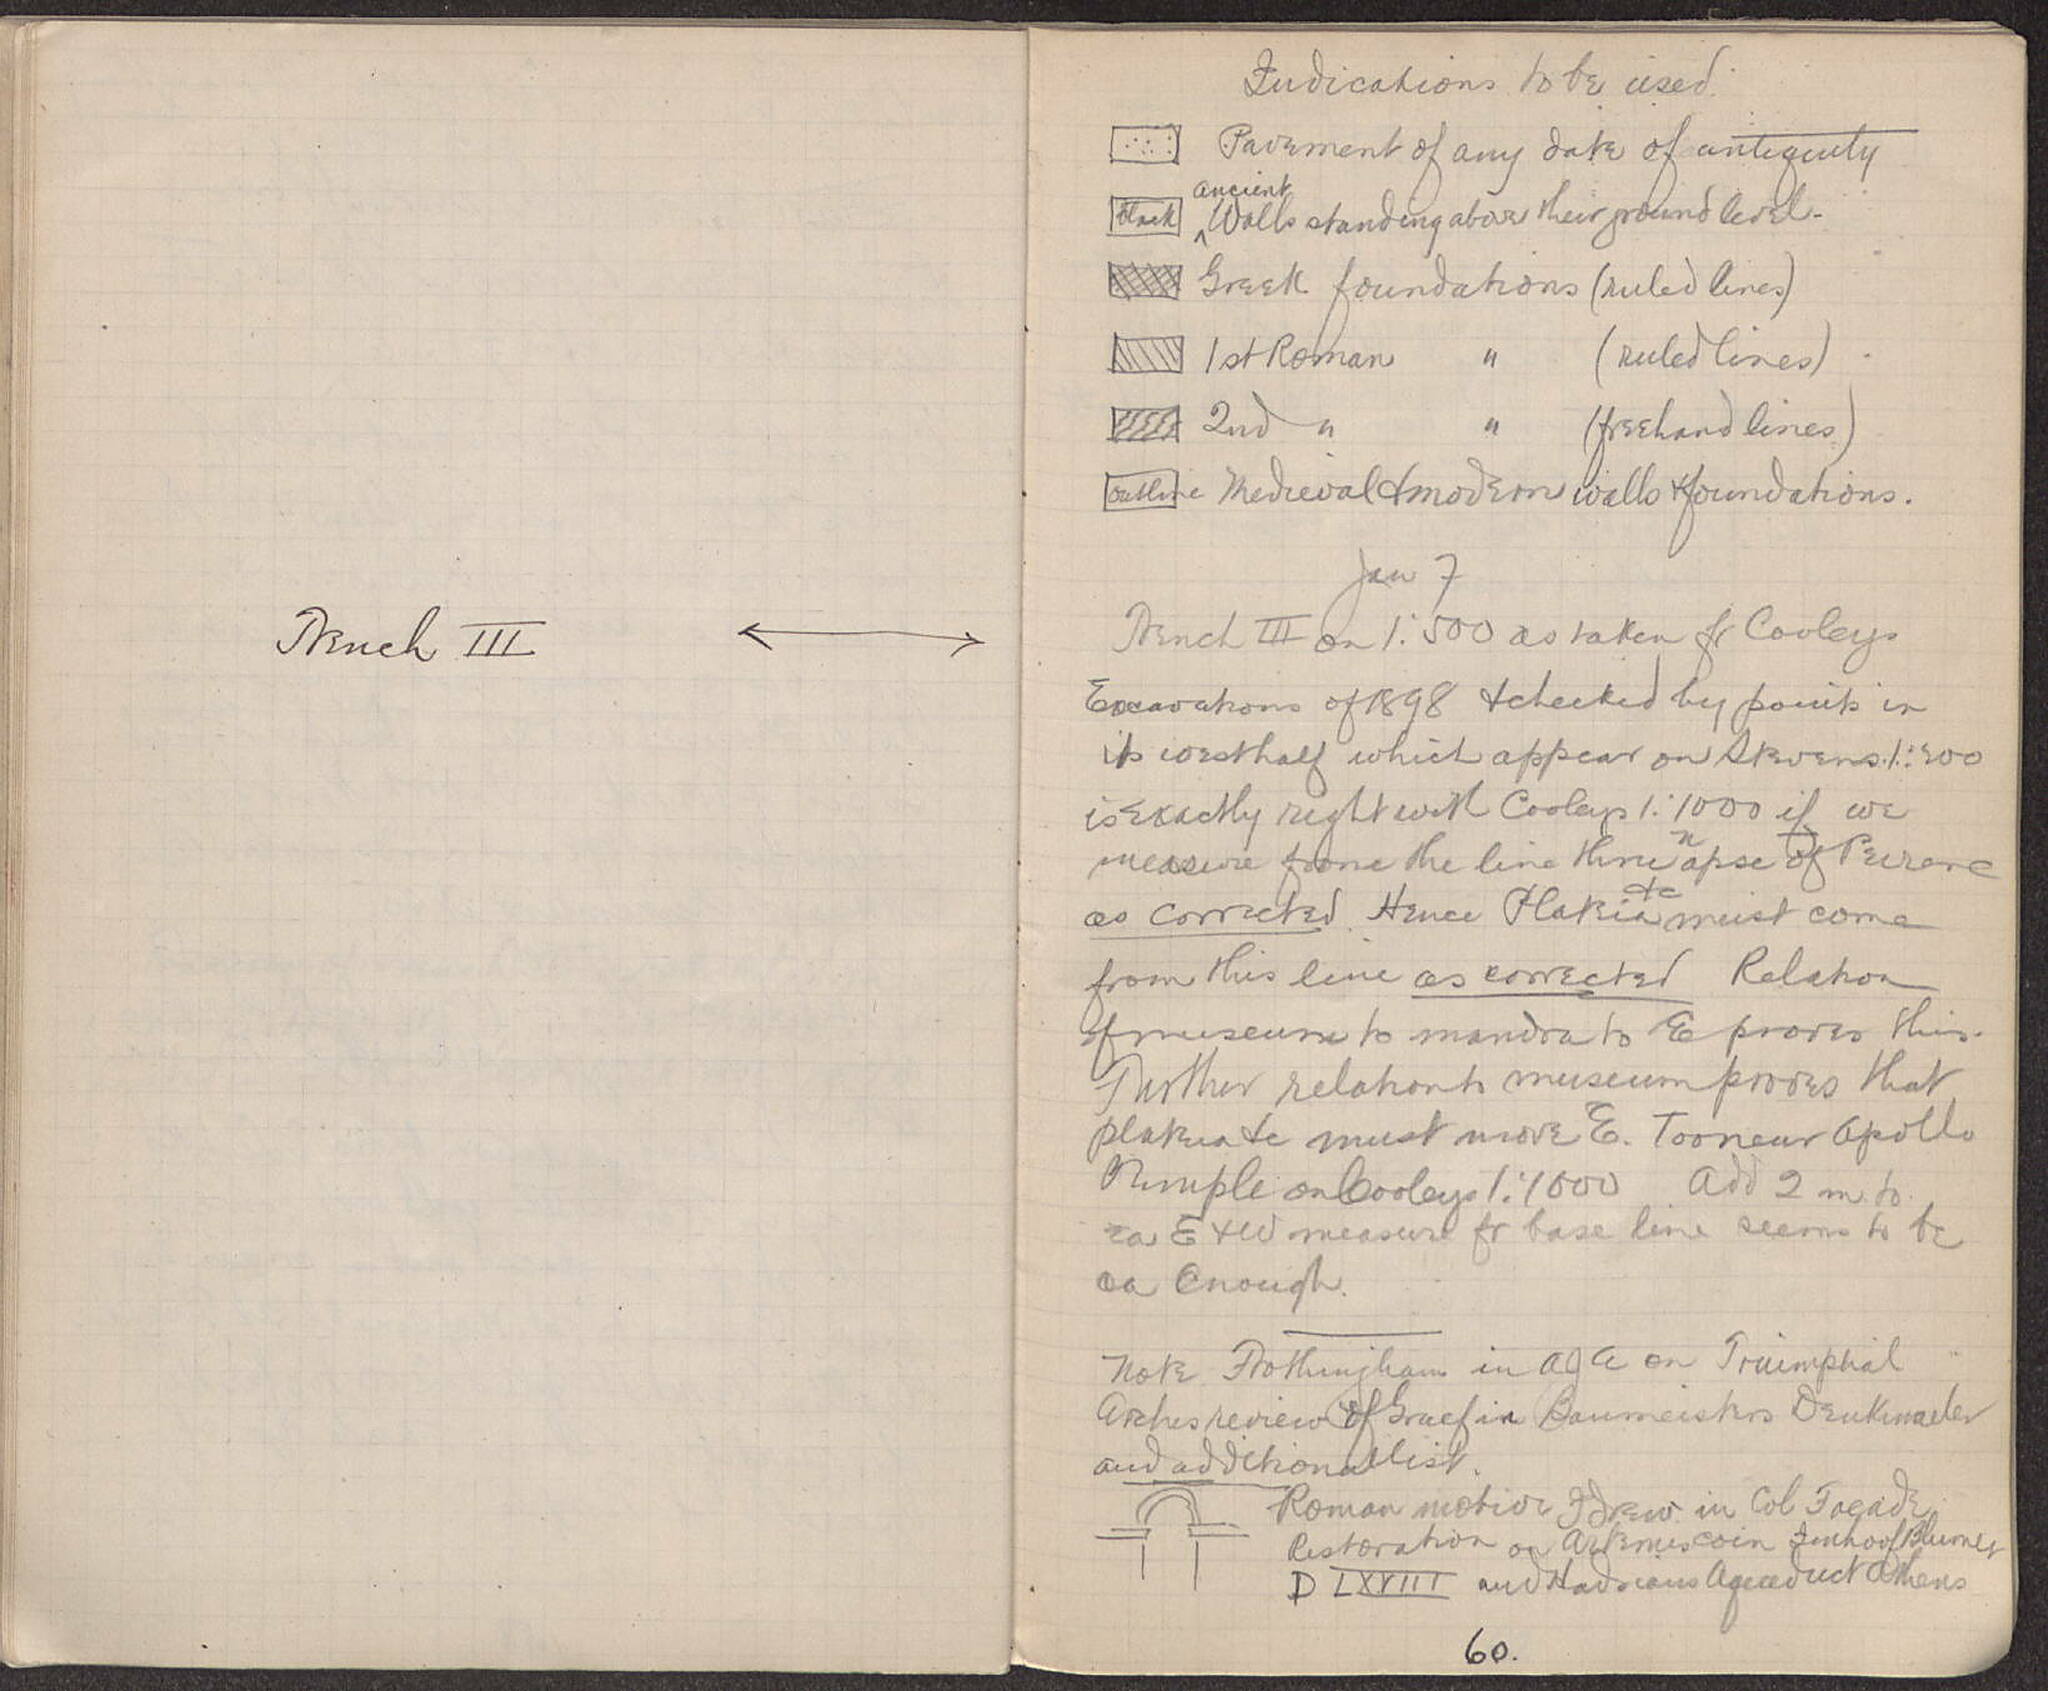 Trench III
Indications to be used.
Pavement of any date of antiquity
black ancient Walls standing above their ground level.
Greek foundations (ruled lines)
1st Roman " (ruled lines)
2nd " " (freehand lines)
outline Medieval & modern walls & foundations.
Jan 7
Trench III on 1:500 as taken fr Cooleys
Excavations of 1898 & checked by points in
its west half which appear on Stevens 1:200
is exactly right with Cooleys 1:1000 if we
measure from the line thru n apse of Peirene
as corrected. Hence Plakia &c must come
from this line as corrected Relation
of museum to mandra to E proves this.
Further relation to museum proves that
plakia &c must move E. Too near Apollo
Temple on Cooleys 1:1000 Add 2 m. to
ea E & W measure fr base line seems to be
ca enough.
Note Frothingham in AJA on Triumphal
Arches review of Graef in Baumeisters Denkmaeler
and additional list.
Roman motive I drew in Col Facade
Restoration on Artemis coin Imhoof Blumer
D LXVIII and Hadrians Aqueduct Athens
60.